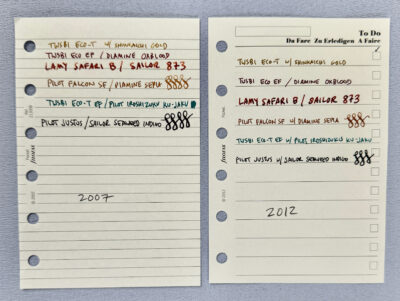 TWSBI ECO-T W/ SHINKAICHI GOLD
TWSBI ECO EF / DIAMINE OXBLOOD
LAMY SAFARI B / SAILOR 873
PILOT FALCON SF / DIAMINE SEPIA
TWSBI ECO-T EF / PILOT IROSHIZUKU KU-JAKU
PILOT JUSTUS / SAILOR SEAWEED INDIGO
2007
filofax
To Do
Da Fare Zu Erledigen A Faire
TWSBI ECO-T W/ SHINKAICHI GOLD
TWSBI ECO EF / DIAMINE OXBLOOD
LAMY SAFARI B / SAILOR 873
PILOT FALCON SF W/ DIAMINE SEPIA
TWSBI ECO-T EF W/ PILOT IROSHIZUKU KU-JAKU
PILOT JUSTUS W/ SAILOR SEAWEED INDIGO
2012
filofax